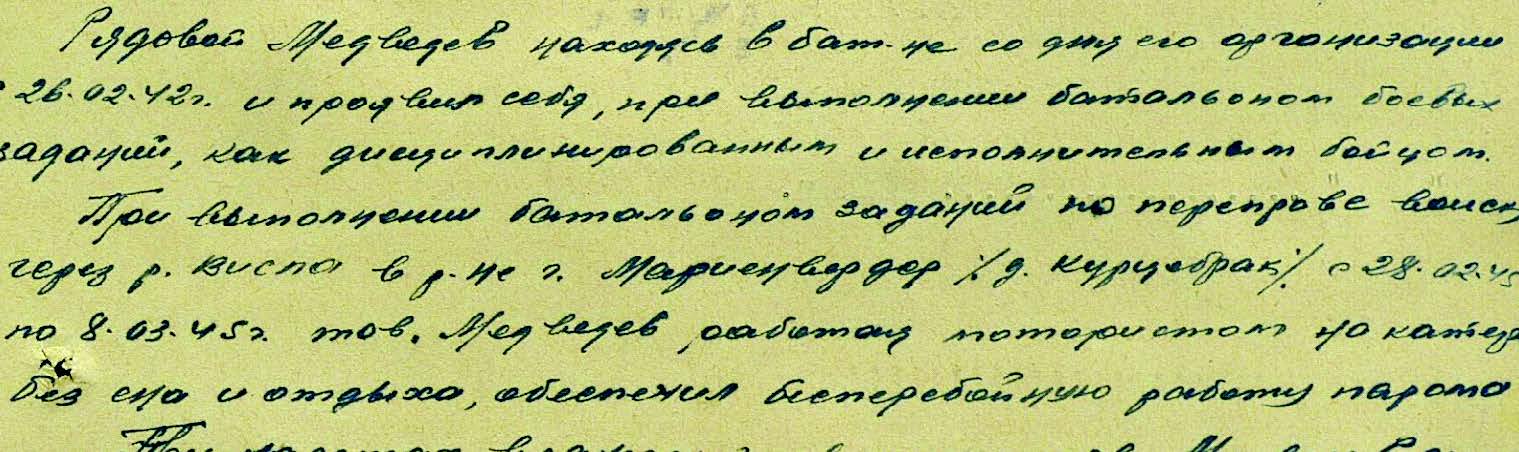 Рядовой Медведев находясь в бат-не со дня его организации
с 26.02.42г. и проявил себя, при выполнении батальоном боевых
заданий, как дисциплинированным и исполнительным бойцом.
При выполнении батальоном заданий по переправе войск
через р. Висла в р-не г. Мариенвердер /д. Курцебрак/ с 28.02.45
по 8.03.45г. тов. Медведев работая мотористом на катере
без сна и отдыха, обеспечил бесперебойную работу парома